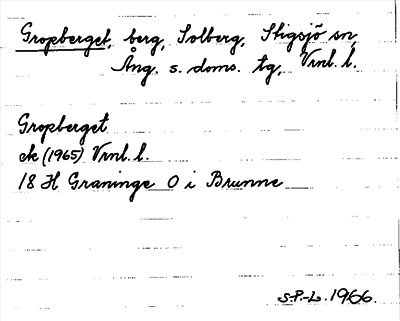 Gropberget, berg, Solberg, Stigsjö sn,
Ång. s. doms. tg, Vrnl. l.
Gropberget
ek (1965) Vrnl. l.
18 H Graninge O i Brunne
S.P.-L. 1966.